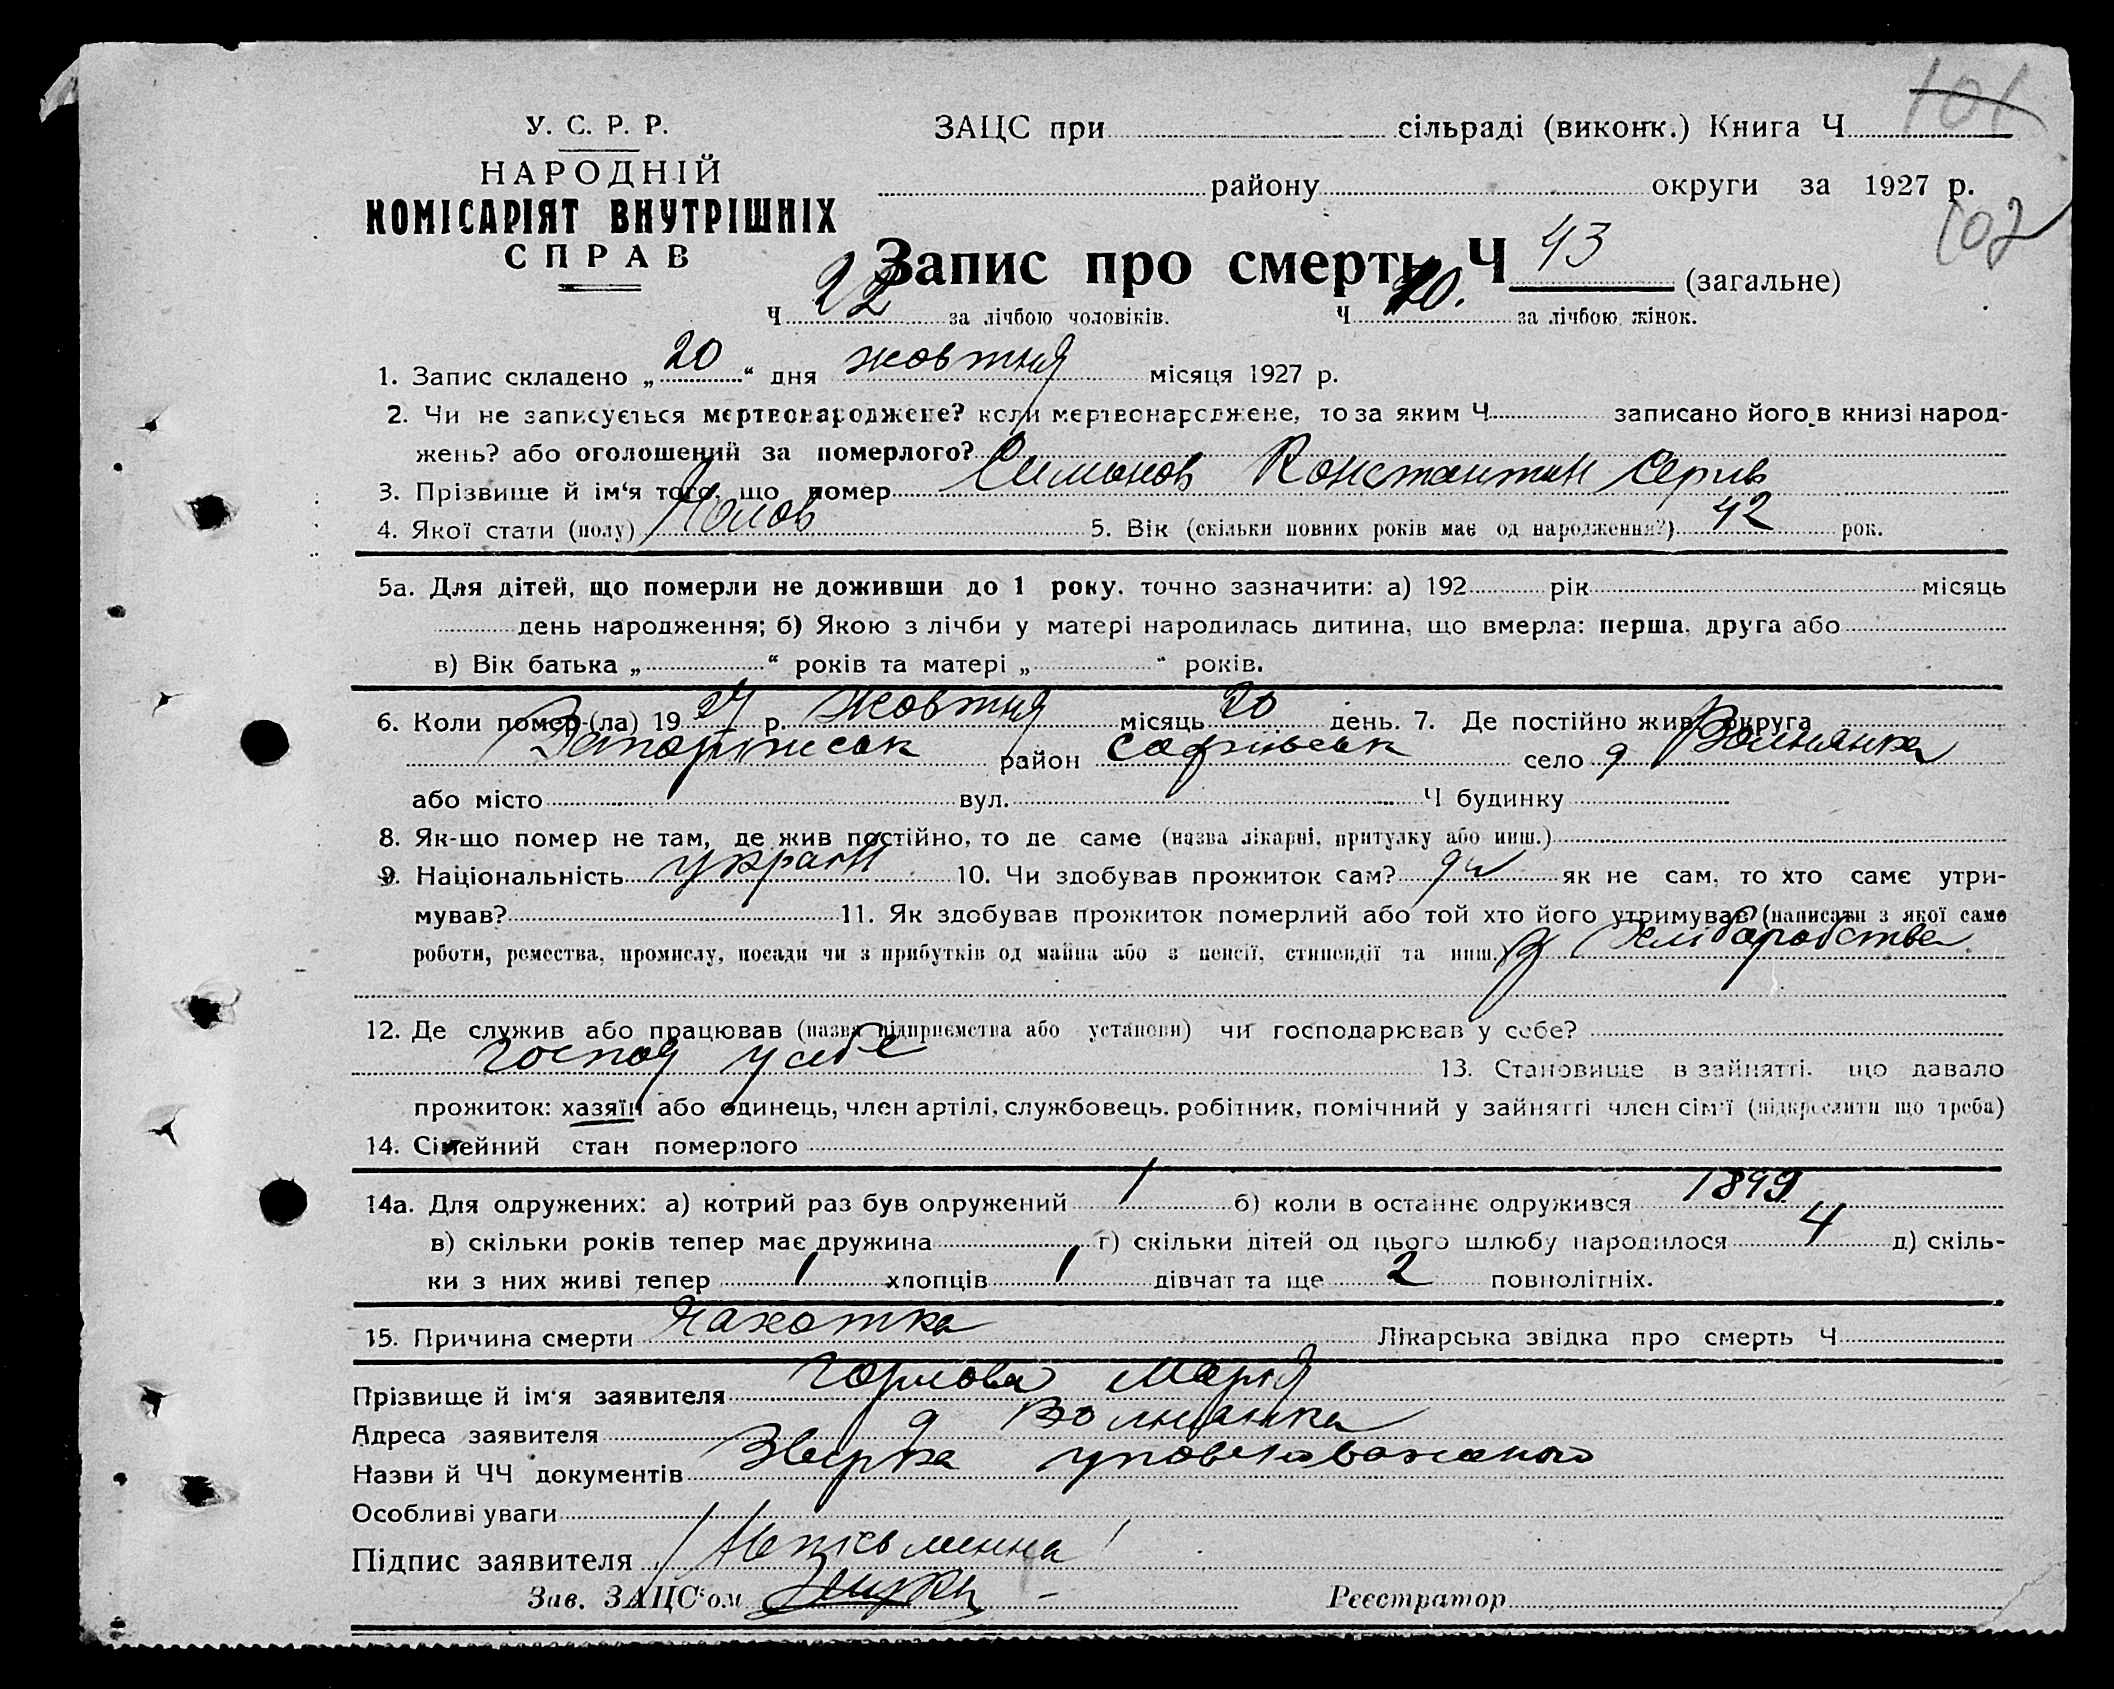 101
У. С. Р. Р.
НАРОДНІЙ
КОМІСАРІЯТ ВНУТРІШНІХ
СПРАВ
ЗАЦС при сільраді (виконк.) Книга Ч
району округи за 1927 р.
102
Запис про смерть Ч 43 (загальне)
Ч 22 за лічбою чоловіків. Ч за лічбою жінок.
1. Запис складено „20“ дня жовтня місяця 1927 р.
2. Чи не записується мертвонароджене? коли мертвонароджене, то за яким Ч записано його в книзі народ-
жень? або оголошений за померлого?
3. Прізвище й ім‘я того, що помер Симонов Константин
4. Якої стати (полу) 5. Вік (скільки повних років має од народження?) 42 рок.
5а. Для дітей, що померли не доживши до 1 року, точно зазначити: а) 192 рік місяць
день народження; б) Якою з лічби у матері народилась дитина, що вмерла: перша, друга або
в) Вік батька „ “ років та матері „ “ років.
6. Коли помер (ла) 1927 р. Жовтня місяць 20 день. 7. Де постійно жив? округа
район село
або місто вул. Ч будинку
8. Як-що помер не там, де жив постійно, то де саме (назва лікарні, притулку або инш.)
9. Національність украін 10. Чи здобував прожиток сам? як не сам, то хто саме утри-
мував? 11. Як здобував прожиток померлий або той хто його утримував? (написати з якої саме
роботи, ремества, промислу, посади чи з прибутків од майна або з пенсії, стипендії та инш.)
12. Де служив або працював (назва підприємства або установи) чи господарював у себе?
господ у себе 13. Становище в зайнятті, що давало
прожиток: хазяїн або одинець, член артілі, службовець, робітник, помічний у зайнятті член сім‘ї (підкреслити що треба)
14. Сімейний стан померлого
14а. Для одружених: а) котрий раз був одружений 1 б) коли в останнє одружився 1899
в) скільки років тепер має дружина г) скільки дітей од цього шлюбу народилося 4 д) скіль-
ки з них живі тепер 1 хлопців 1 дівчат та ще 2 повнолітніх.
15. Причина смерти Чахотка Лікарська звідка про смерть Ч
Прізвище й ім‘я заявителя Марія
Адреса заявителя
Назви й ЧЧ документів
Особливі уваги
Підпис заявителя
Зав. ЗАЦС‘ом Реєстратор